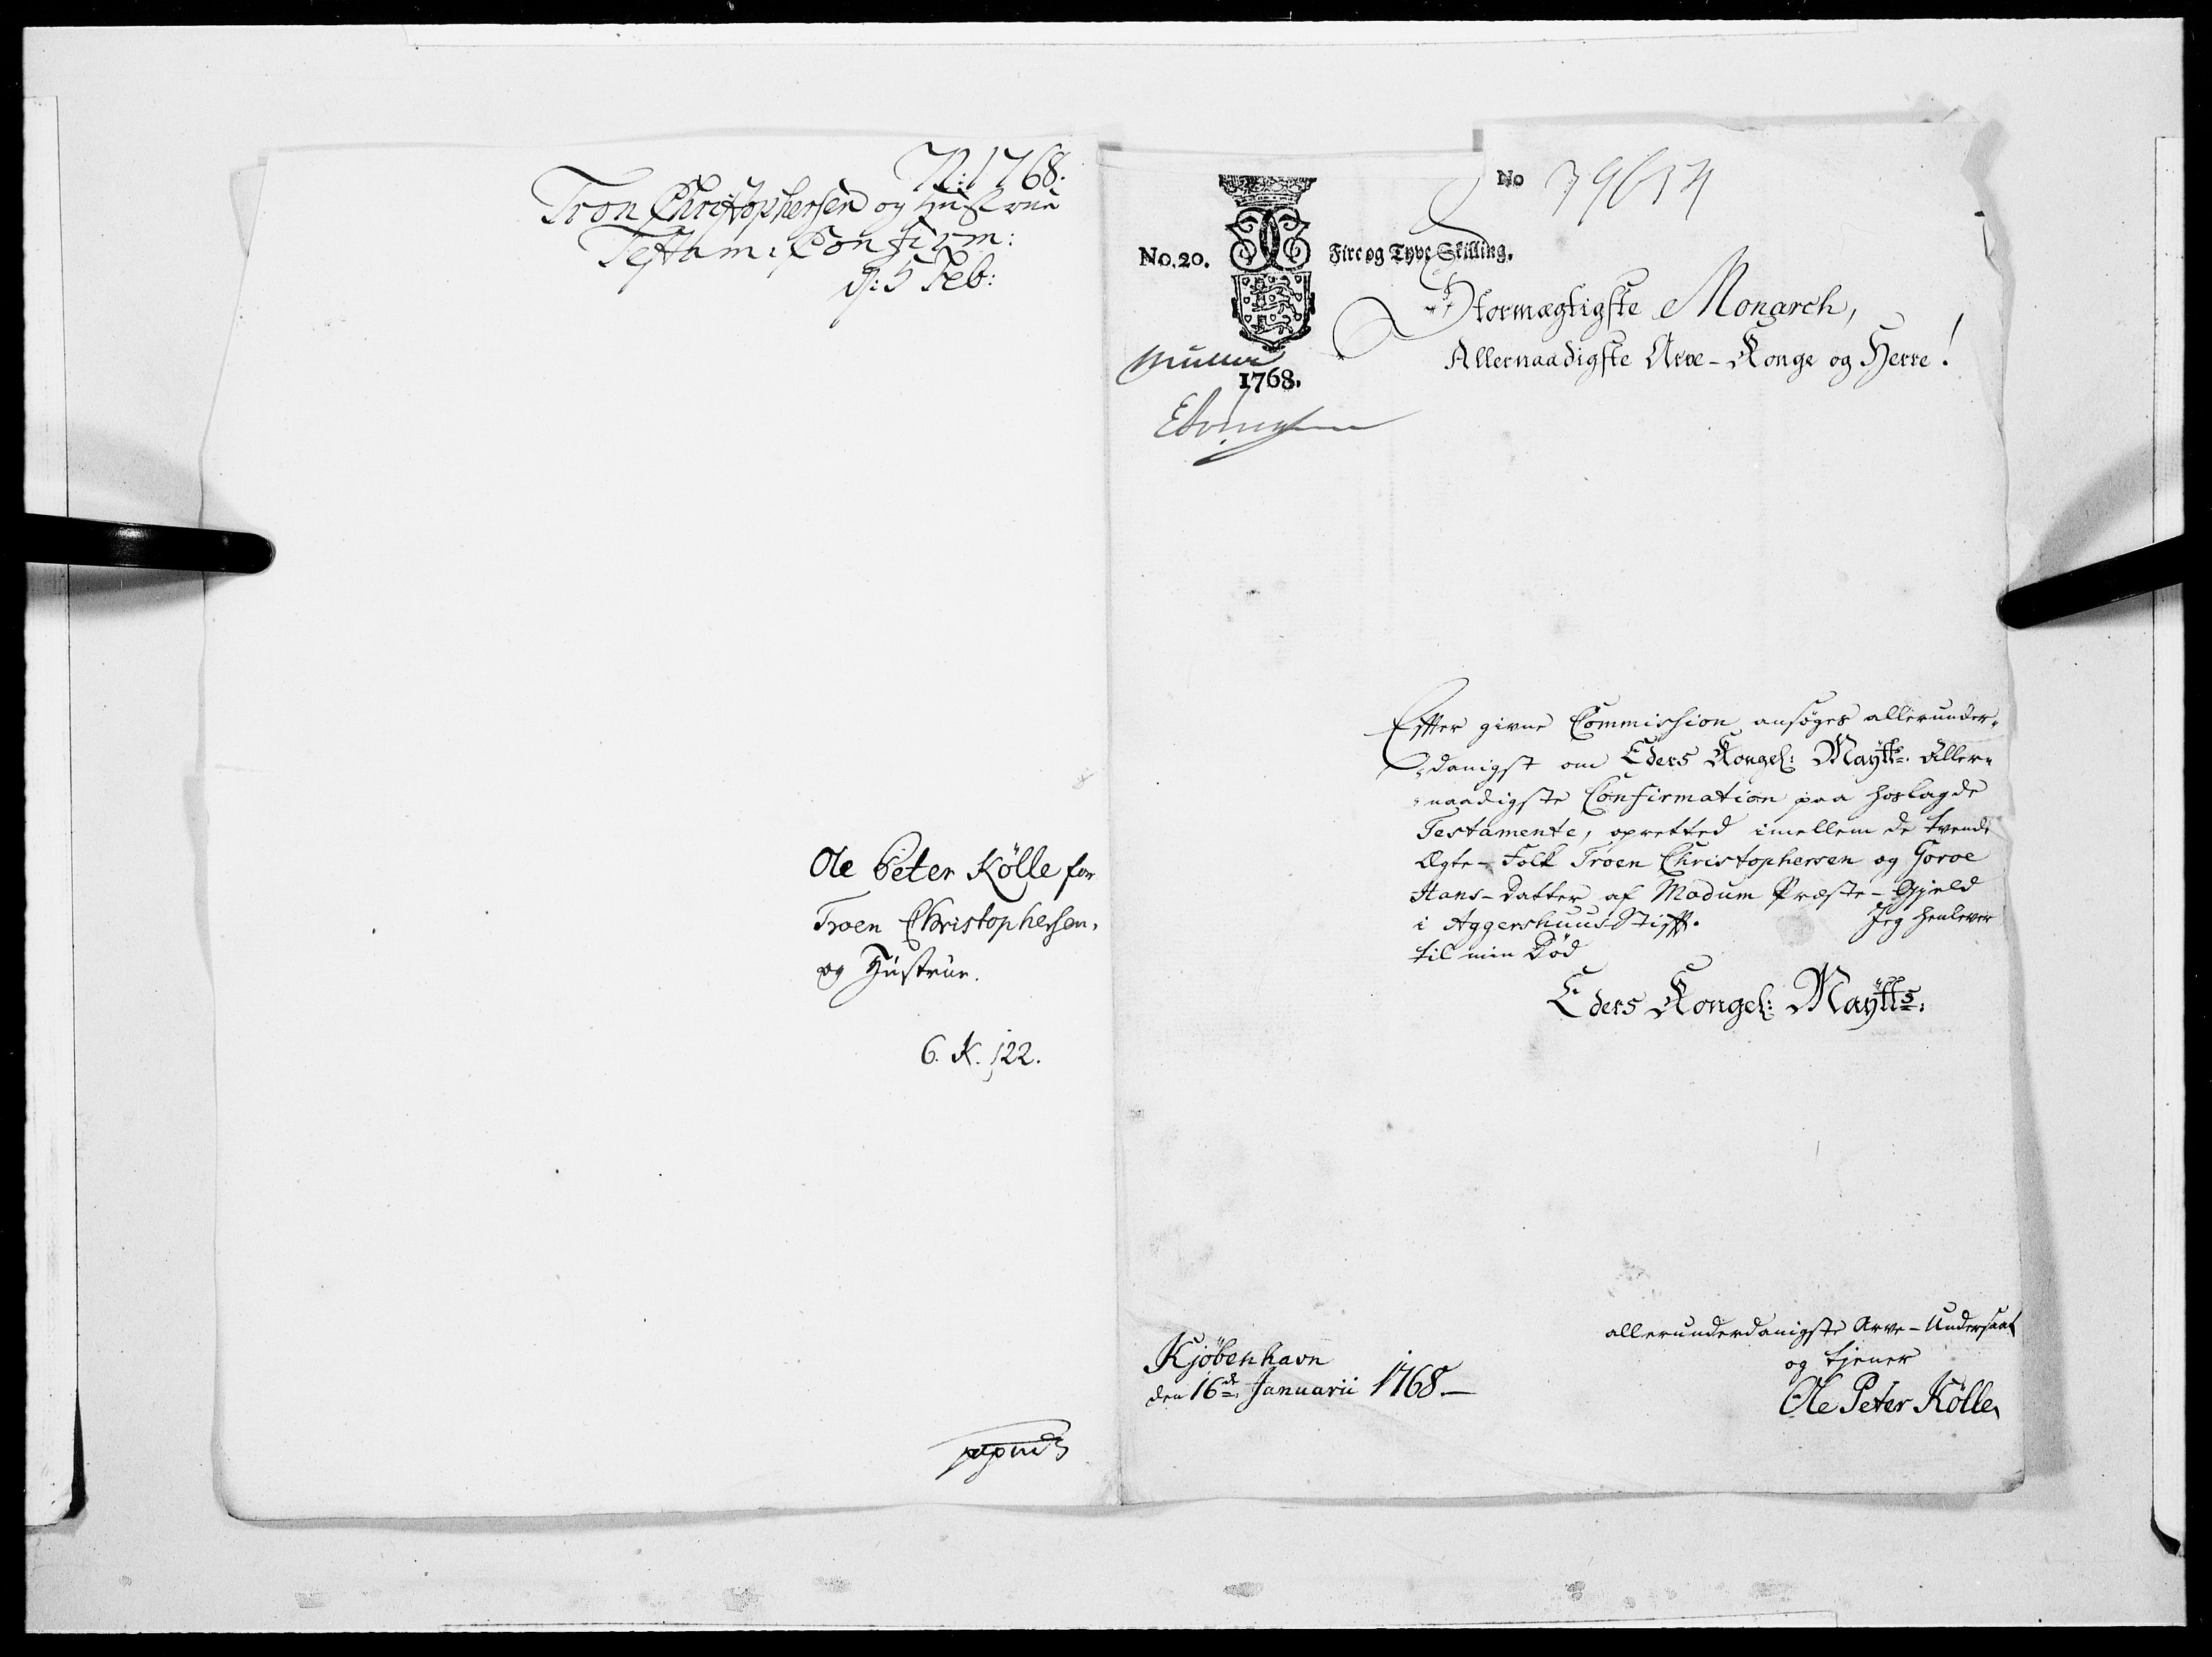 N: 1768.
Tron Christophersen og Hustrue
Testam: Confirm:
d: 5 Feb:
Ole Peter Kölle for
Troen Christophersen,
og Hustrue.
6. K. 122.
No 39614
No. 20. Fire og Tyve Skilling.
Stormægtigste Monarch,
Allernaadigste Arve-Konge og Herre!
Müller
1768.
Efter givne Commission ansøges allerunder-
danigst om Eders Kongel: Maytts. Aller-
naadigste Confirmation paa hoslagde
Testamente, opretted imellem de tvende
Ægte-Folk Troen Christophersen og Goroe
Hans-Datter af Modum Præste-Gjeld
i Aggershuus Stifft. Jeg henlever
til min Død
Eders Kongel: Maytts.
allerunderdanigste Arve-Undersaat
og tjener
Ole Peter Kölle
Kjöbenhavn
den 16de Januarii 1768